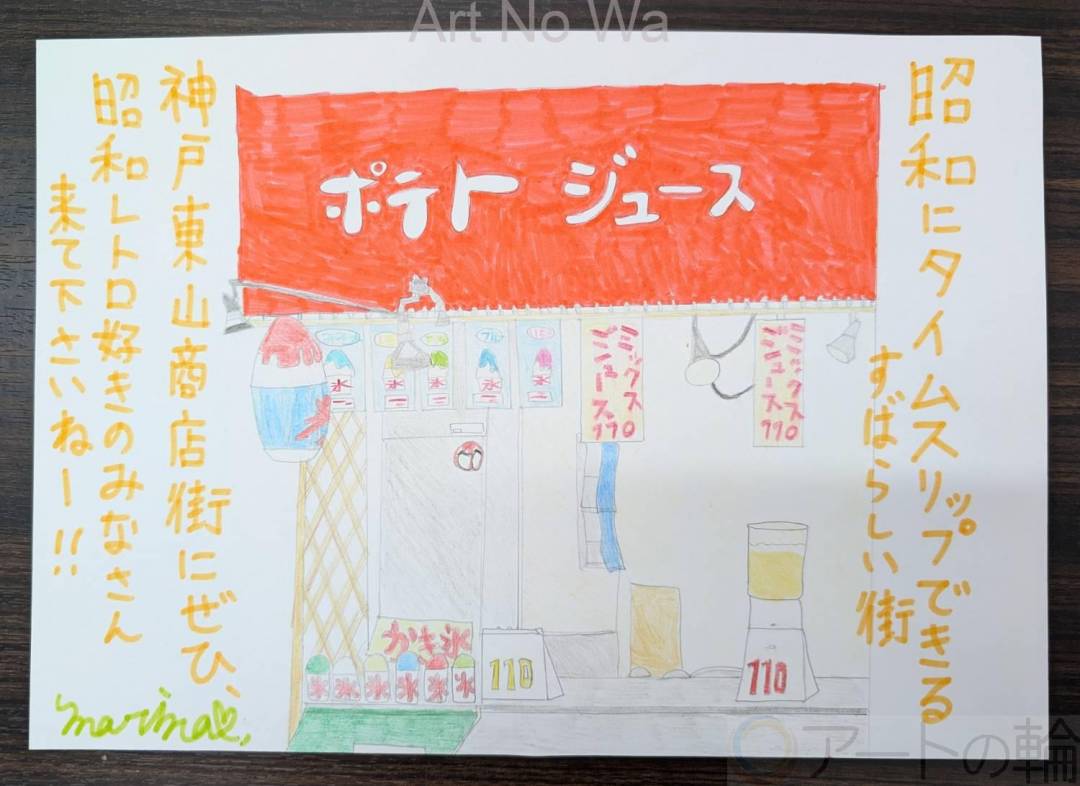 Art No Wa
昭和にタイムスリップできる
すばらしい街
ポテト ジュース
氷
氷
氷
氷
氷
ミックス
ジュース
110
ミックス
ジュース
110
かき氷
氷
氷
氷
氷
氷
氷
110
110
神戸東山商店街にぜひ、
昭和レトロ好きのみなさん
来て下さいねー!!
marina
アートの輪